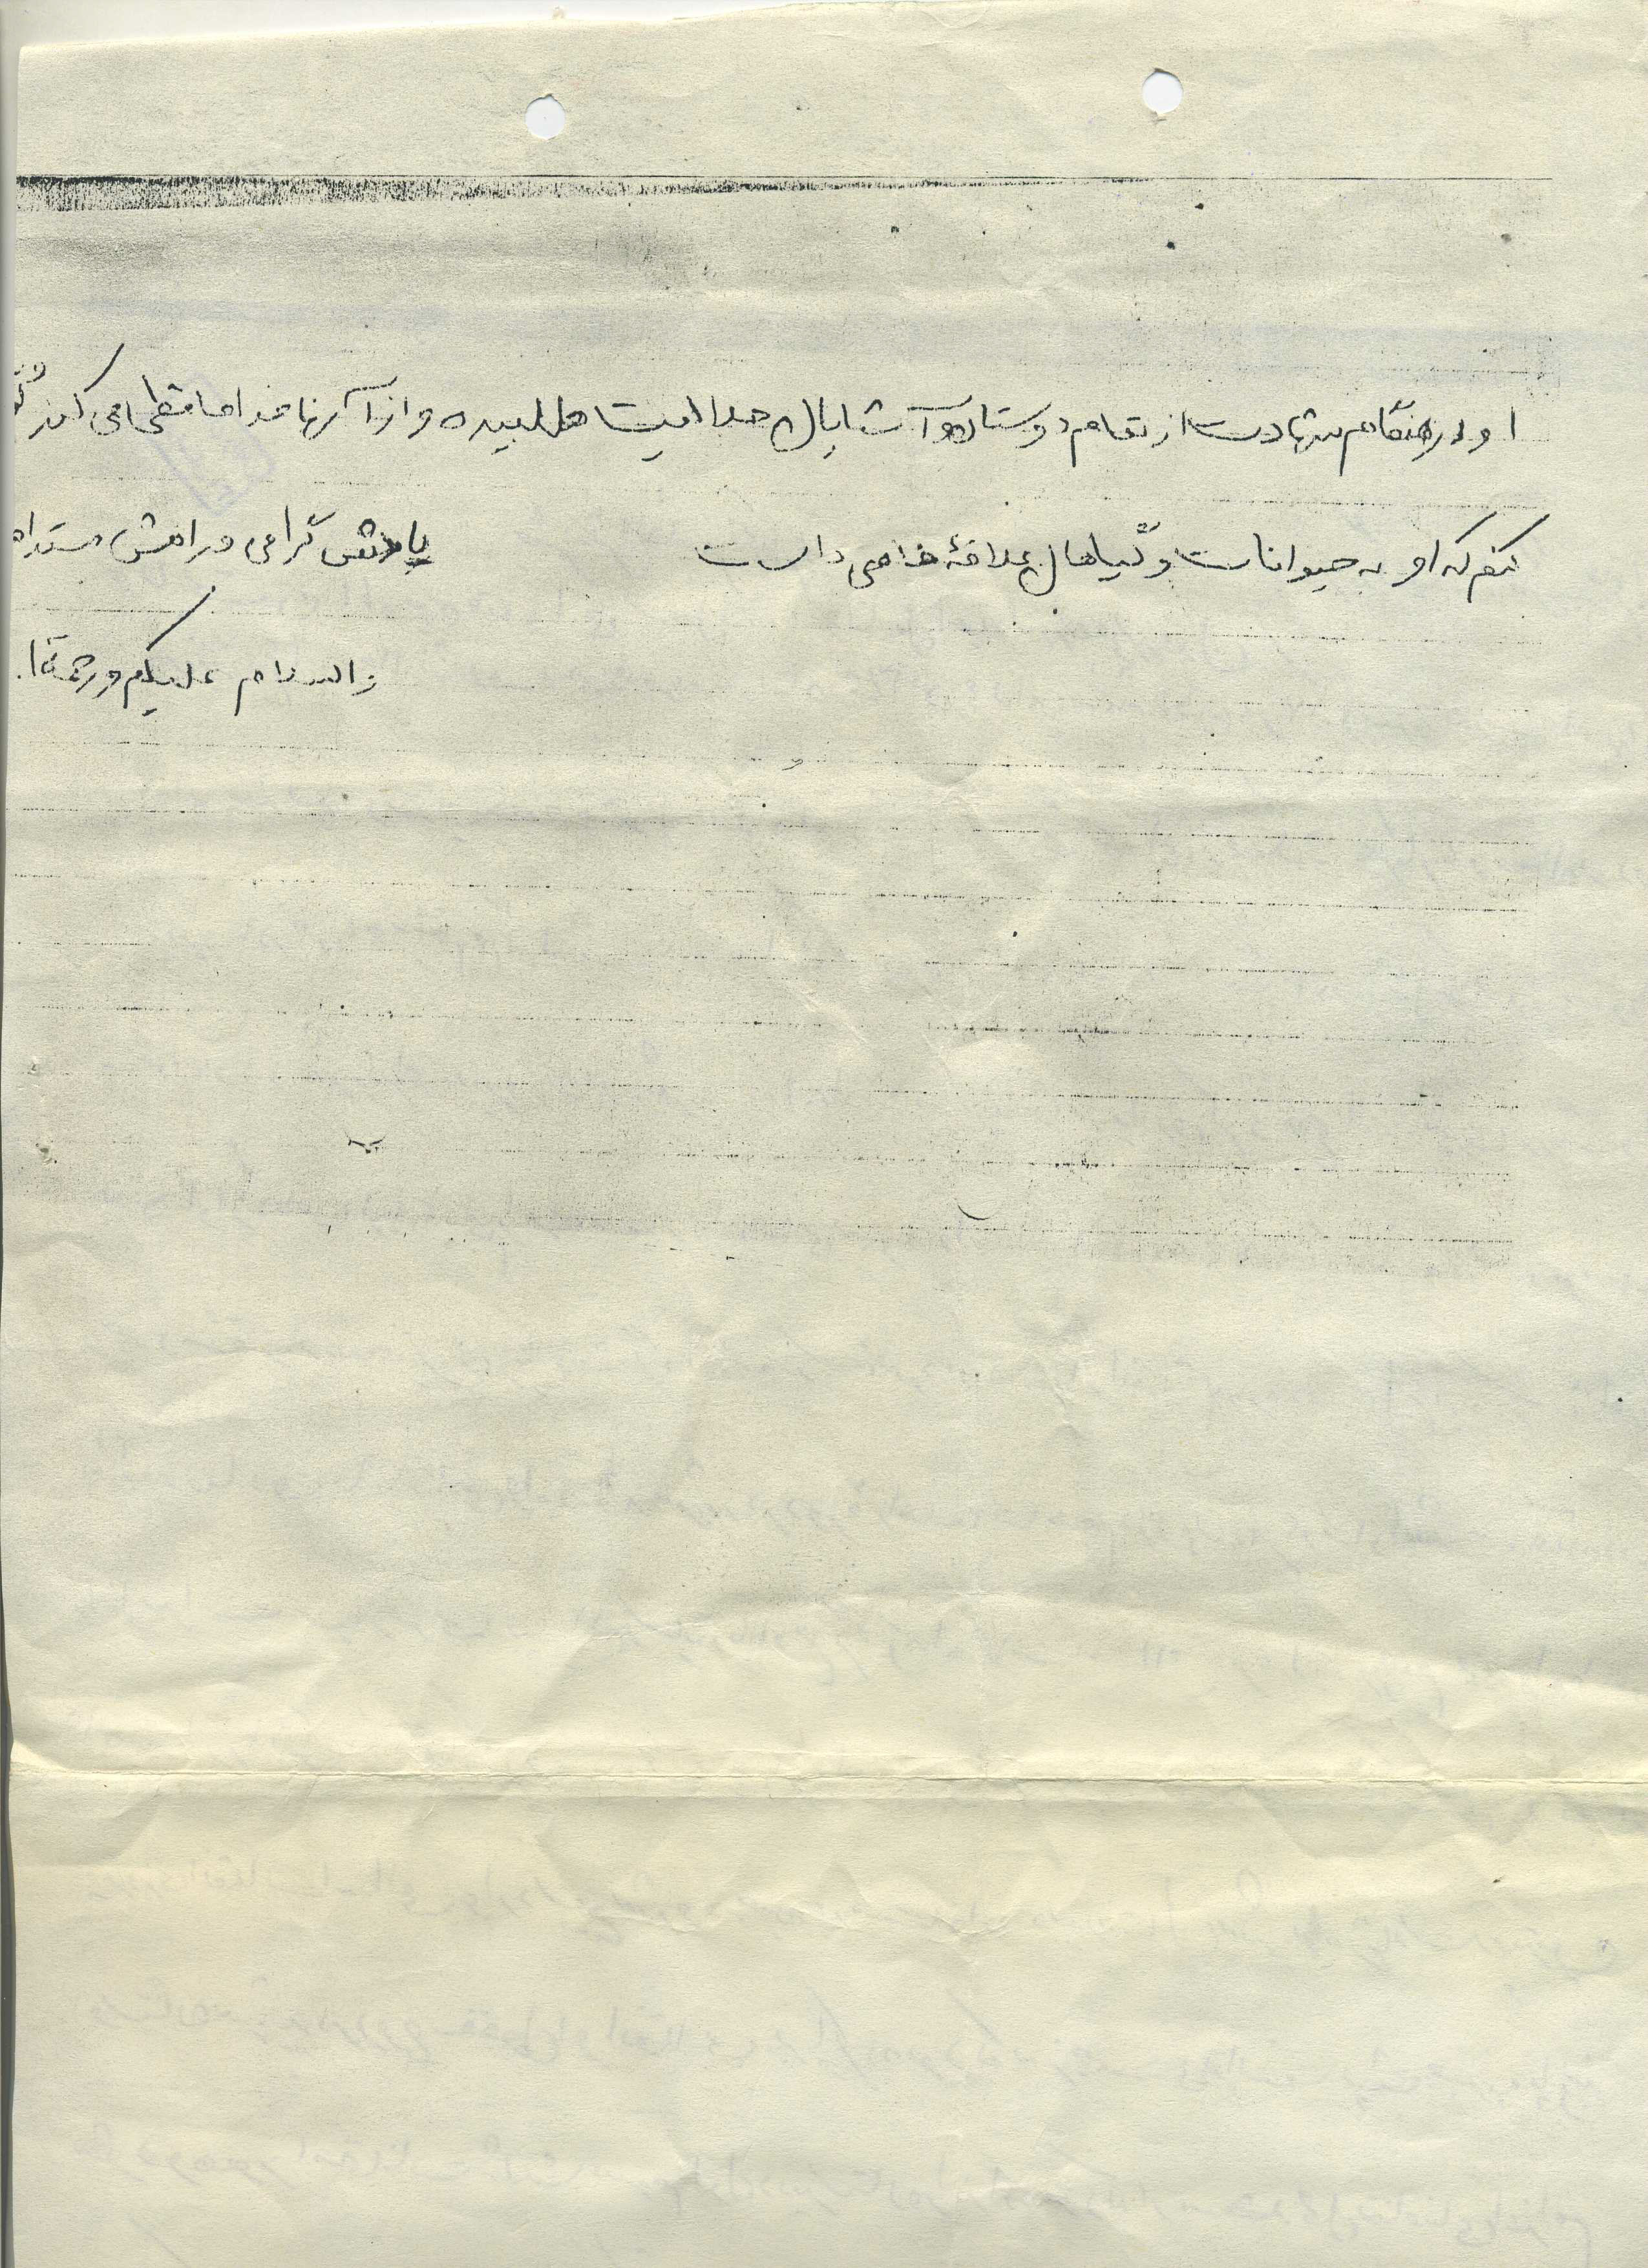 او در هنگام شهادت از تمام دوستان و آشنایان حلالیت طلبیده و از آنها خداحافظی می کند
کنم که او به حیوانات و گیاهان علاقۀ خاصی داشت یادش گرامی و راهش مستدام
والسلام علیکم و رحمة ا.